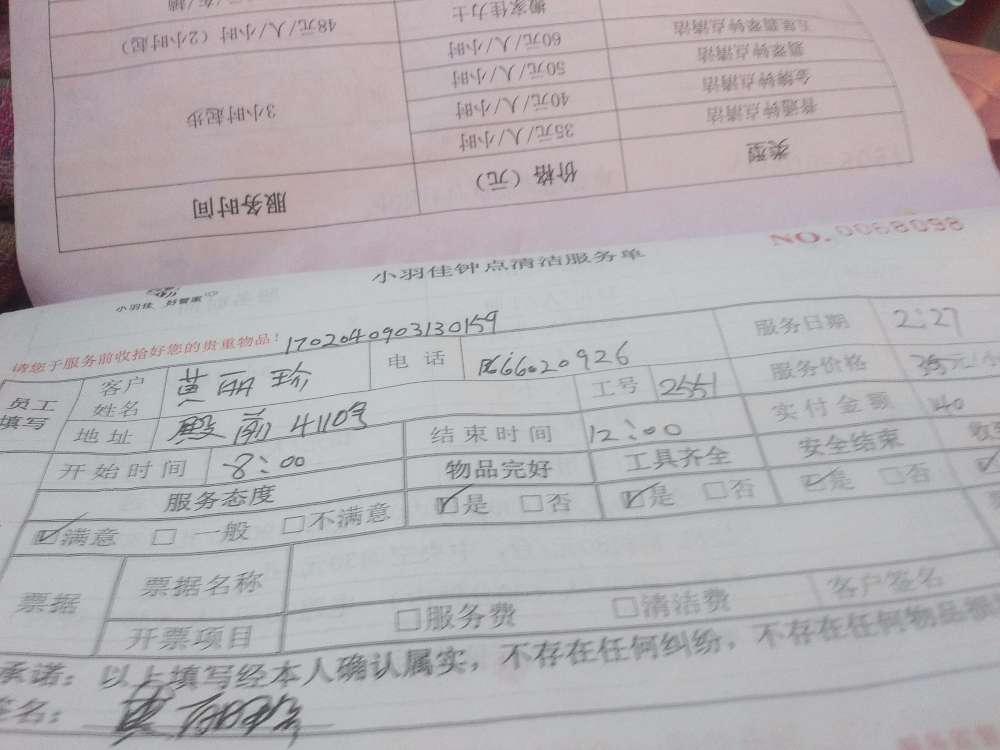 搬家佳力士
48元/人/小时（2小时起）
60元/人/小时
五星翡翠钟点清洁
50元/人/小时
翡翠钟点清洁
3小时起步
40元/人/小时
金牌钟点清洁
35元/人/小时
普通钟点清洁
服务时间 价格（元） 类型
NO.0068098
小羽佳钟点清洁服务单
小羽佳 好管家
请您于服务前收拾好您的贵重物品！1702040903130159
员工填写 客户姓名 黄丽珍 电话 6620926 服务日期 2:27
地址 殿前411号 工号 2551 服务价格
开始时间 8:00 结束时间 12:00 实付金额 140
服务态度 物品完好 工具齐全 安全结束
☑满意 □一般 □不满意 ☑是 □否 ☑是 □否 ☑是 □否
票据 票据名称
开票项目 □服务费 □清洁费 客户签名
承诺：以上填写经本人确认属实，不存在任何纠纷，不存在任何物品
签名：黄丽珍